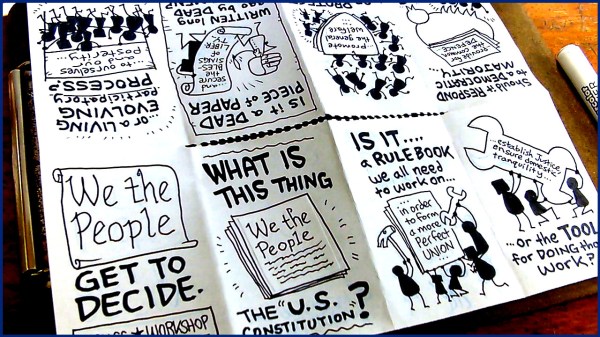 ...or a LIVING
EVOLVING
participatory
PROCESS?
to ourselves
and our
posterity!...
IS it a DEAD
PIECE OF PAPER
and
secure
the
BLES-
SINGS
of
LIBER
TY
WRITTEN long
ago by DEAD
promote
the general
welfare
Should it RESPOND
to a DEMOCRATIC
MAJORITY
provide for
the common
DEFENCE
We the
People
GET TO
DECIDE.
WORKSHOP
WHAT IS
THIS THING
We the
People
THE "U.S.
CONSTITUTION"?
IS IT....
a RULE BOOK
we all need
to work on...
...in order
to form
a more
Perfect
UNION
...establish Justice
ensure domestic
tranquility...
...or the TOOL
for DOING tha
Work?